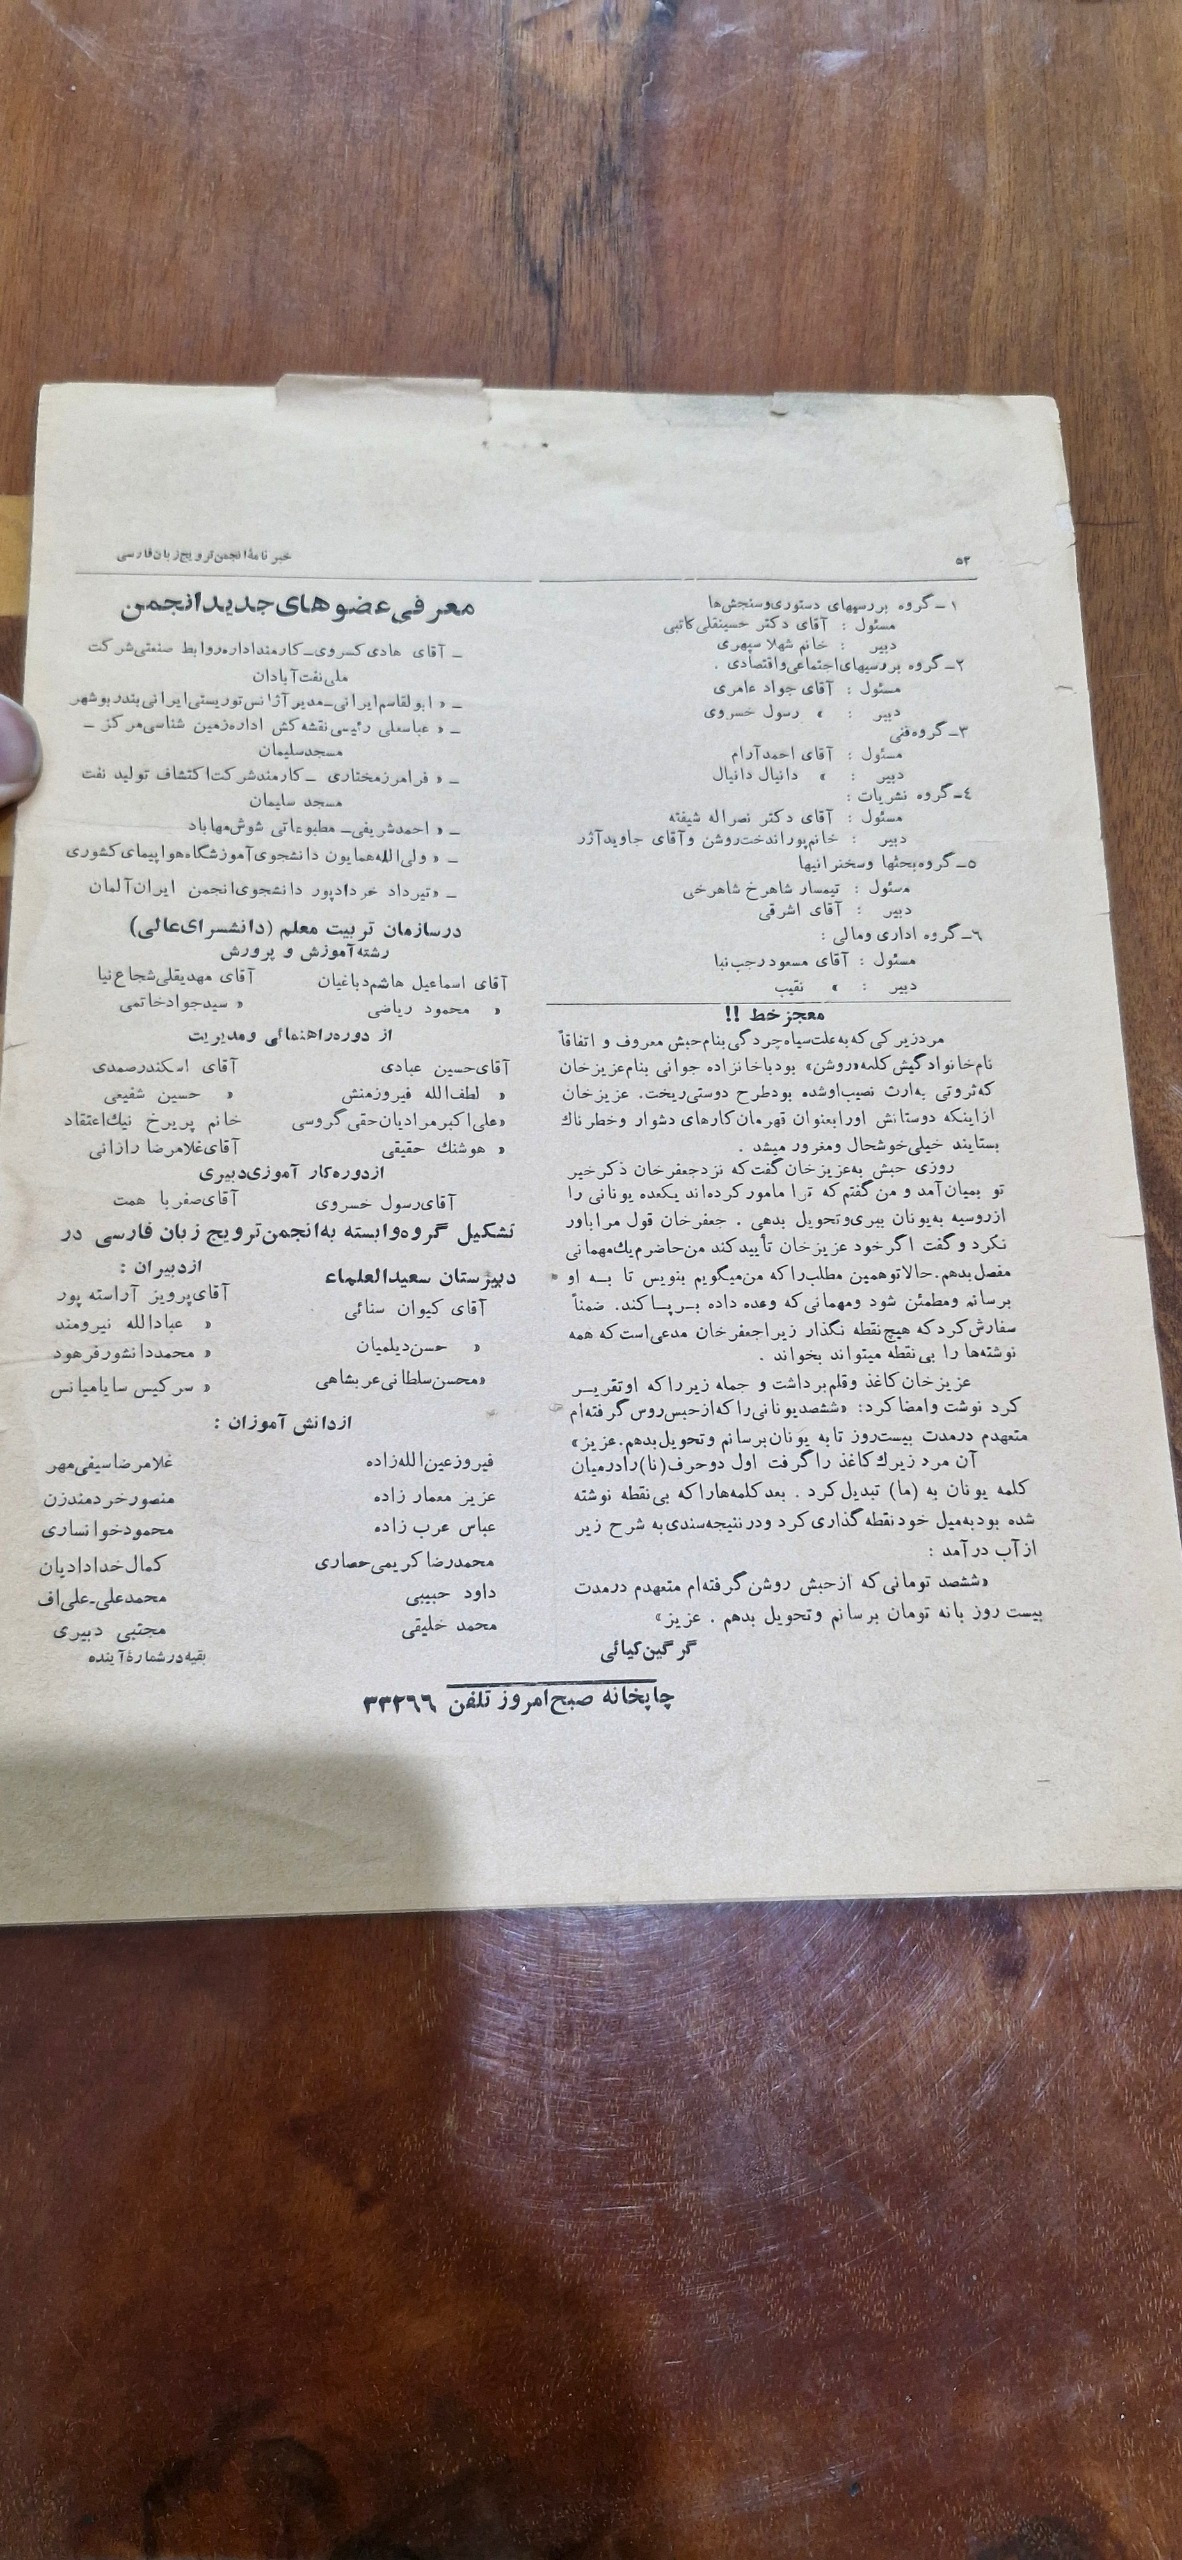 ۵۲
خبرنامهٔ انجمن ترویج زبان فارسی
۱ـ گروه بررسیهای دستوری و سنجش‌ها
مسئول : آقای دکتر حسینقلی کاتبی
دبیر : خانم شهلا سپهری
۲ـ گروه بررسیهای اجتماعی و اقتصادی .
مسئول : آقای جواد عامری
دبیر : » رسول خسروی
۳ـ گروه فنی
مسئول : آقای احمد آرام
دبیر : » دانیال دانیال
٤ـ گروه نشریات :
مسئول : آقای دکتر نصراله شیفته
دبیر : خانم پوراندخت روشن و آقای جاوید آژر
۵ـ گروه بحثها و سخنرانیها
مسئول : تیمسار شاهرخ شاهرخی
دبیر : آقای اشرقی
٦ـ گروه اداری و مالی :
مسئول : آقای مسعود رجب‌نیا
دبیر : » نقیب
معجز خط !!
مرد زیرکی که به علت سیاه‌چردگی بنام حبش معروف و اتفاقاً
نام خانوادگیش کلمه «روشن» بود با خانزاده جوانی بنام عزیزخان
که ثروتی به‌ارث نصیب او شده بود طرح دوستی ریخت. عزیزخان
از اینکه دوستانش او را بعنوان قهرمان کارهای دشوار و خطرناك
بستایند خیلی خوشحال و مغرور میشد .
روزی حبش به‌عزیزخان گفت که نزد جعفرخان ذکر خیر
تو بمیان آمد و من گفتم که ترا مامور کرده‌اند یکعده یونانی را
از روسیه به یونان ببری و تحویل بدهی . جعفرخان قول مرا باور
نکرد و گفت اگر خود عزیزخان تأیید کند من حاضرم یك مهمانی
مفصل بدهم. حالا تو همین مطلب را که من میگویم بنویس تا بــه او
برسانم و مطمئن شود و مهمانی که وعده داده بــرپــا کند. ضمناً
سفارش کرد که هیچ نقطه نگذار زیرا جعفرخان مدعی است که همه
نوشته‌ها را بی‌نقطه میتواند بخواند .
عزیزخان کاغذ و قلم برداشت و جمله زیر را که او تقریــر
کرد نوشت و امضا کرد: «ششصد یونانی را که از حبس روس گرفته‌ام
متعهدم درمدت بیست روز تا به یونان برسانم و تحویل بدهم. عزیز»
آن مرد زیرك کاغذ را گرفت اول دو حرف (نا) را درمیان
کلمه یونان به (ما) تبدیل کرد . بعد کلمه‌ها را که بی‌نقطه نوشته
شده بود به‌میل خود نقطه گذاری کرد و در نتیجه سندی به شرح زیر
از آب در آمد :
«ششصد تومانی که از حبش روشن گرفته‌ام متعهدم درمدت
بیست روز بانه تومان برسانم و تحویل بدهم . عزیز»
گرگین کیائی
معرفی عضوهای جدید انجمن
ـ آقای هادی کسروی ـ کارمند اداره روابط صنعتی شرکت
ملی نفت آبادان
ـ » ابولقاسم ایرانی ـ مدیر آژانس توریستی ایرانی بندر بوشهر
ـ » عباسعلی رئیسی نقشه کش اداره زمین شناسی مرکز ـ
مسجد سلیمان
ـ » فرامرز مختاری ـ کارمند شرکت اکتشاف تولید نفت
مسجد سلیمان
ـ » احمد شریفی ـ مطبوعاتی شوش مهاباد
ـ » ولی‌الله همایون دانشجوی آموزشگاه هواپیمای کشوری
ـ » تیرداد خردادپور دانشجوی انجمن ایران آلمان
در سازمان تربیت معلم (دانشسرای عالی)
رشته آموزش و پرورش
آقای اسماعیل هاشم دباغیان آقای مهدیقلی شجاع نیا
» محمود ریاضی » سید جواد خاتمی
از دوره راهنمائی و مدیریت
آقای حسین عبادی آقای اسکندر صمدی
» لطف‌الله فیروزمنش » حسین شفیعی
» علی‌اکبر مرادیان حقی گروسی خانم پریرخ نیك اعتقاد
» هوشنك حقیقی آقای غلامرضا رازانی
از دوره کار آموزی دبیری
آقای رسول خسروی آقای صفر با همت
تشکیل گروه وابسته به‌انجمن ترویج زبان فارسی در
دبیرستان سعیدالعلماء از دبیران :
آقای کیوان سنائی آقای پرویز آراسته پور
» حسن دیلمیان » عبادالله نیرومند
» محسن سلطانی عربشاهی » محمد دانشور فرهود
» سرکیس سایامیانس
از دانش آموزان :
فیروز عین‌الله زاده غلامرضا سیفی مهر
عزیز معمار زاده منصور خردمندزن
عباس عرب زاده محمود خوانساری
محمدرضا کریمی حصاری کمال خدادادیان
داود حبیبی محمدعلی ـ علی‌اف
محمد خلیقی مجتبی دبیری
بقیه در شمارهٔ آینده
چاپخانه صبح امروز تلفن ۳۳۲٦٦